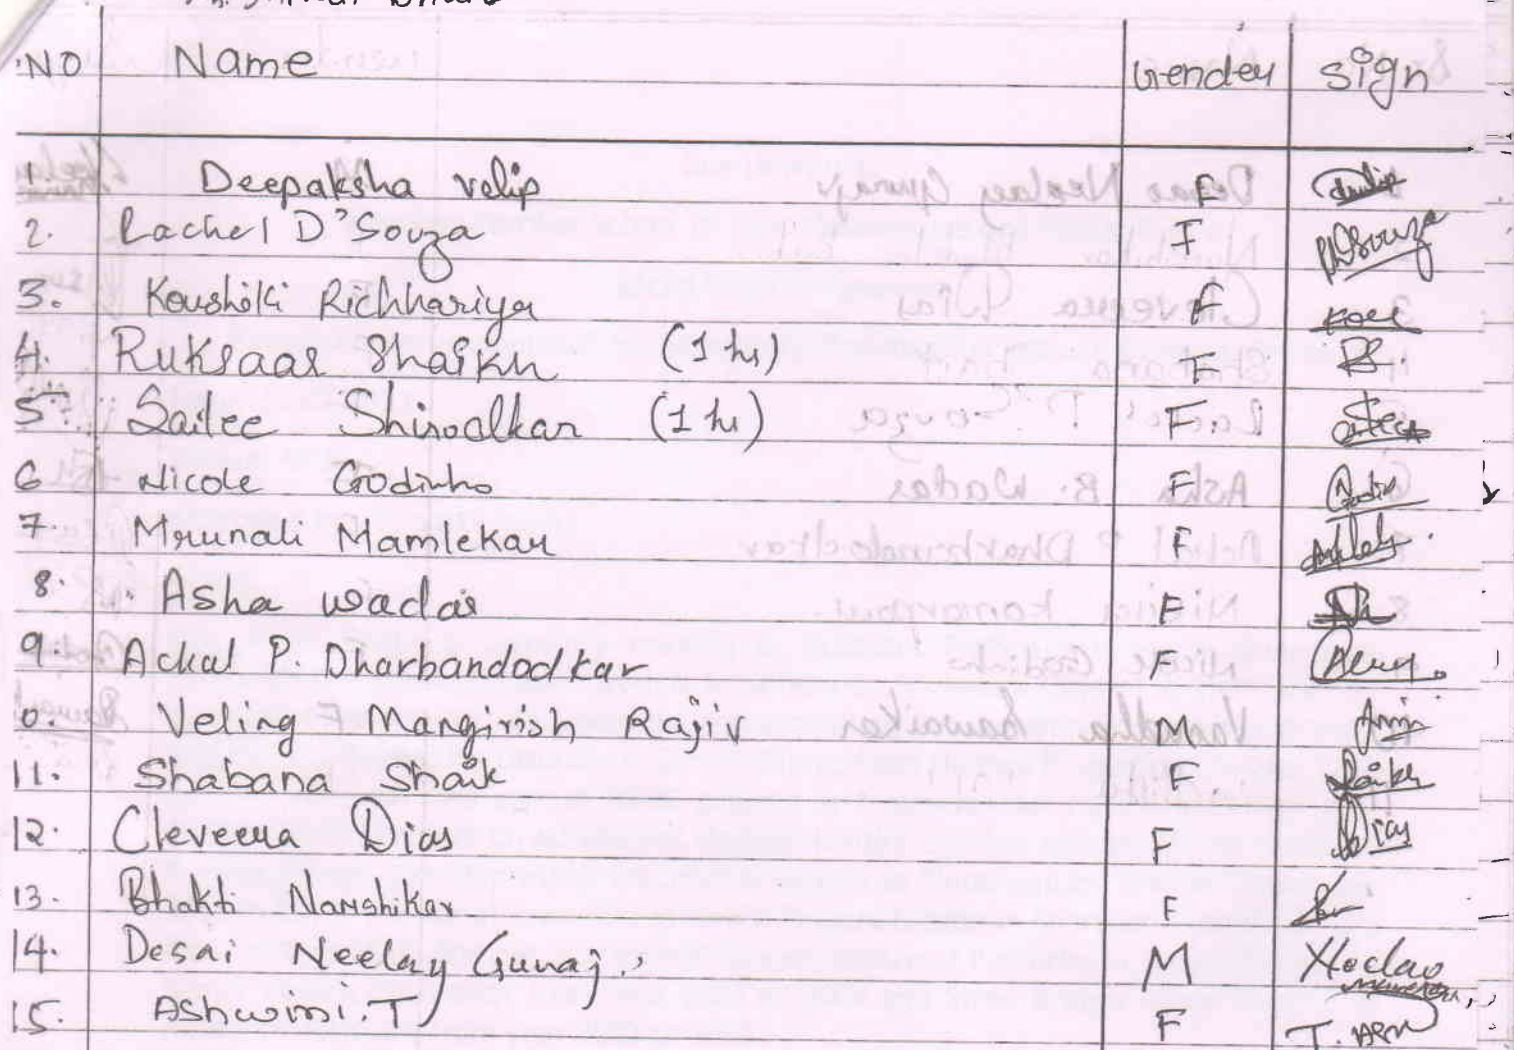 NO Name Gender Sign
1 Deepaksha Velip F
2. Rachel D'Souza F RDSouza
3. Koushiki Richhariya F Koee
4. Ruksaar Shaikh (1 hr) F RS.
5. Sailee Shirodkar (1 hr) F.
6 Nicole Godinho F Godin
7. Mrunali Mamlekar F
8. Asha Wadar F
9. Achal P. Dharbandodkar F
0. Veling Mangirish Rajiv M
11. Shabana Shaik F Shaikh
12. Cleveena Dias F Dias
13. Bhakti Narshikar F
14. Desai Neelay Gunaji M Neelay
15. Ashwini.T F T. Ashw